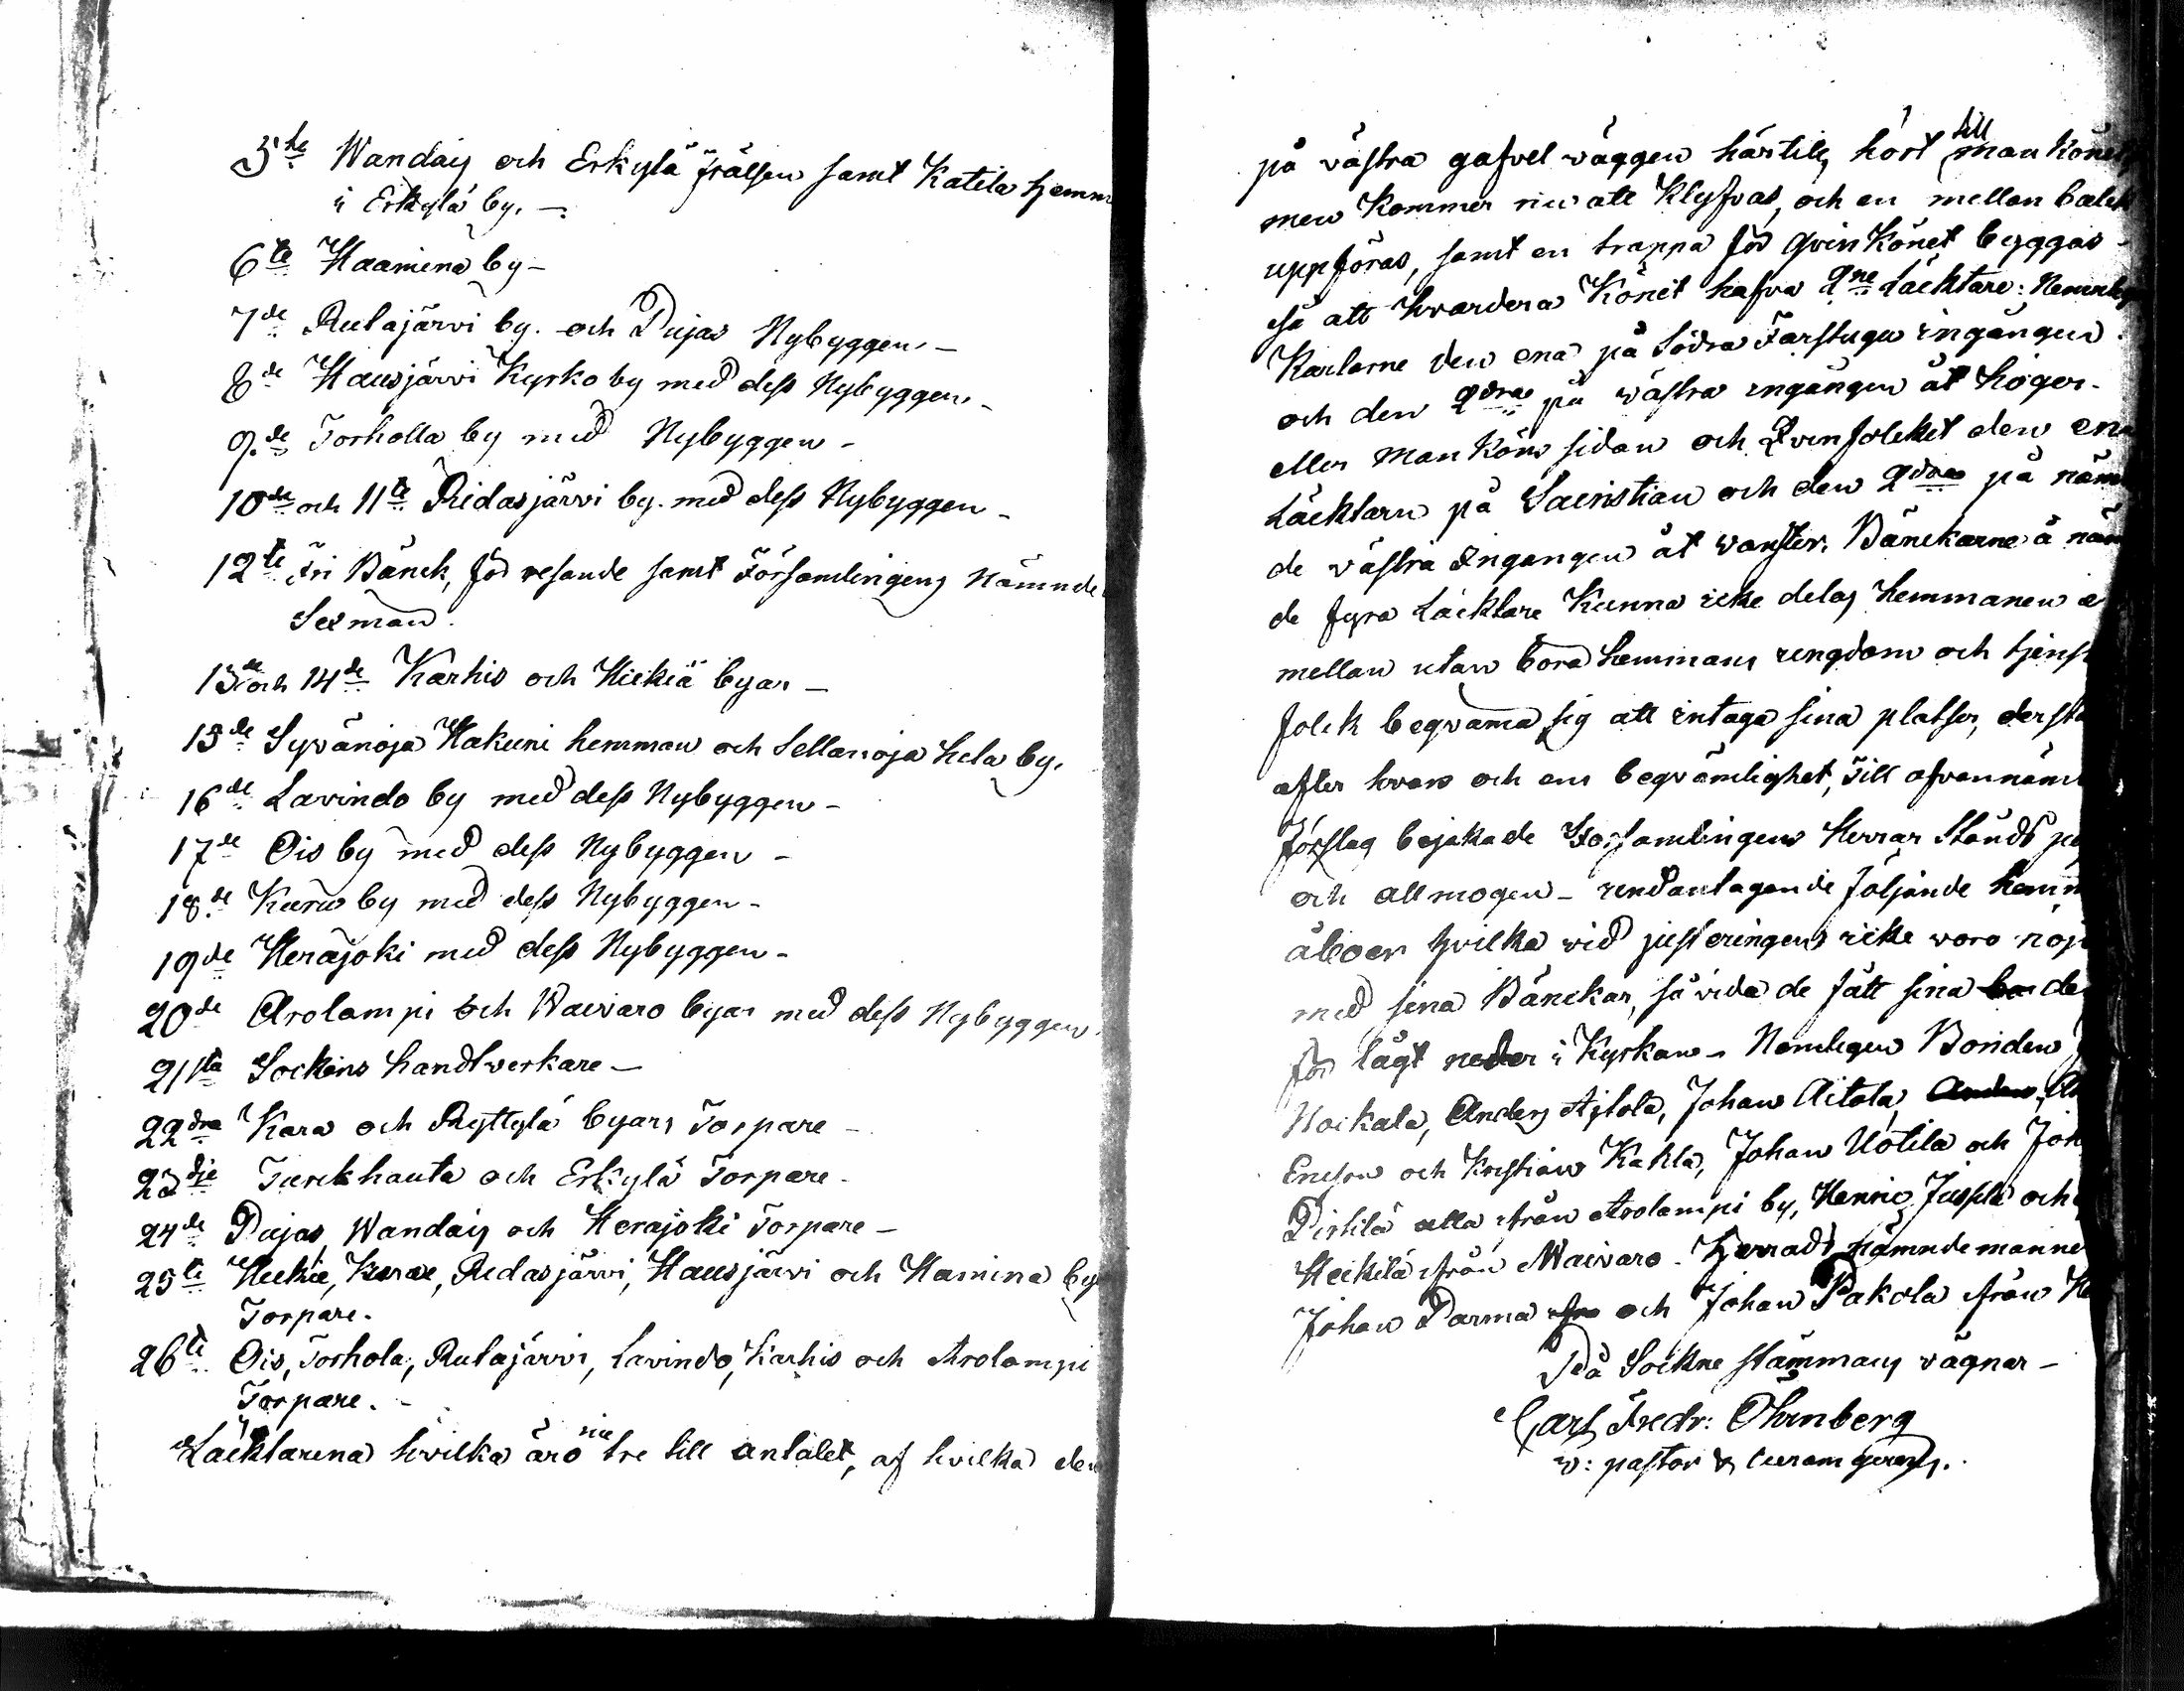 5te Wandais och Erkylä Frälsen samt Katila hemm
i Erkylä by. —
6te Haamina by —
7de Rutajärvi by. och Pujas Nybyggen. —
8de Hausjärvi Kyrko by med dess Nybyggen. —
9de Torholla by med Nybyggen —
10de och 11te Ridasjärvi by. med dess Nybyggen —
12te Fri Bänck, för resande samt Församlingens Nämnde
Sexman.
13de och 14de Karhis och Hickiä byar —
15de Syvänoja Hakuni hemman och Sellanoja hela by.
16de Lavindo by med dess Nybyggen —
17de Ois by med dess Nybyggen —
18de Kuru by med dess Nybyggen —
19de Herajoki med dess Nybyggen —
20de Arolampi och Waivaro byar med dess Nybyggen.
21sta Sockens handtverkare —
22dra Kara och Ryttylä byars Torpare —
23dje Turckhauta och Erkylä Torpare.
24de Pujas, Wandais och Herajoki Torpare —
25te Hickie, Kurue, Ridasjärvi, Hausjärvi och Hamina by
Torpare.
26te Ois, Torhola, Rutajärvi, Lavindo, Karhis och Arolampi
Torpare. —
Läcktarena hvilka äro nu tre till antalet, af hvilka den
på västra gafvel väggen härtils hört till man könet
men Kommer nu att Klyfvas, och en mellan balck
uppföras, samt en trappa för qvin Könet byggas —
så att hvardera Könet hafva 2ne Läcktare: Nemnl
Karlarne den ena på Södra Farstugu ingången
och den 2dra på västra ingången åt höger —
eller man Köns sidan och Qvinfolcket den ena
Läcktarn på Sacristian och den 2dra på näm
de västra Ingången åt vänster. Bänckarne å näm
de fyra Läcktare Kunna icke delas hemmanen e
mellan utan böra hemmans ungdom och tjenst
folck beqväma sig att intaga sina platser, dersta
efter hvars och ens beqvämlighet, Till ofvannäm
förslag bejakade Församlingens Herrar Stånds pe
och allmogen — undantagande följande hemm
åboer hvilka vid justeringen icke voro nöj
med sina Bänckar, så vida de fått sina de
för lågt neder i Kyrkan — Nemligen Bonden
Noikala, Anders Ajtola, Johan Aitola,
Ericson och Kristian Kakla, Johan Uotila och Joh
Pirtilä alla från Arolampi by, Henric Juspila och
Heikilä från Waivaro. Härads nämndemanne
Johan Parma och Johan Pakola från H
På Sockne stämmans vägnar —
Carl Fredr: Öhrnberg
v: pastor & curam gerens.